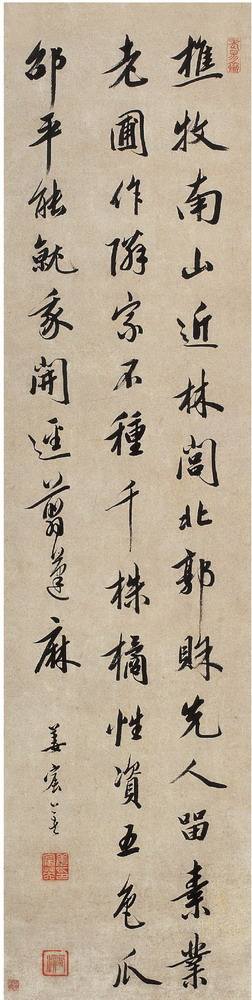 樵牧南山近林閭北郭賖先人留素業
老圃作隣家不種千株橘惟資五色瓜
邵平能就我開逕翦蓬麻
姜宸英